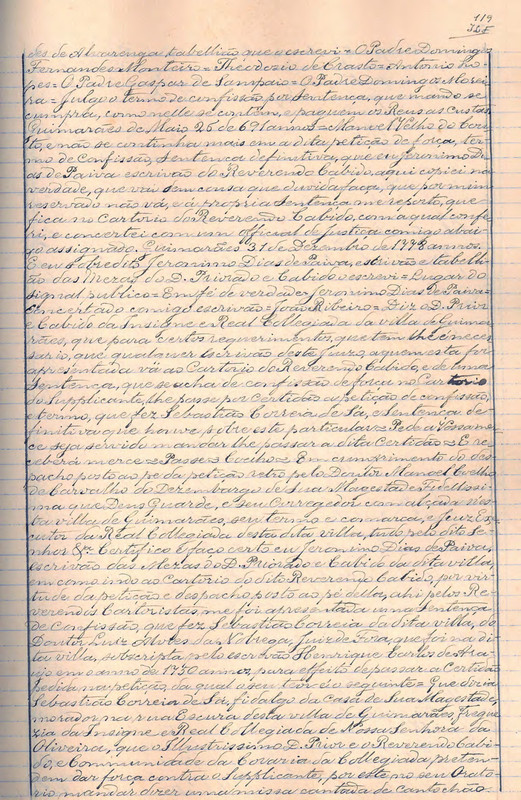 119
des de Alvarenga tabellião que o escrevi = O Padre Domingos
Fernandes Monteiro = Théodozio de Crasto = Antonio Lo-
pes = O Padre Gaspar de Sampaio = O Padre Domingos Morei-
ra = Julgo o termo de confissão por Sentença, que mando se
cumpra, como nelle se contem, e paguem os Reus as custas.
Guimarães de Maio 25 de 691 annos = Manoel Velho do Cou-
to, e não se continha mais em a dita petição de força, ter-
mo de Confissão, Sentença definitiva, que eu Jeronimo Di-
as de Paiva escrivão do Reverendo Cabido, aqui copiei na
verdade, que vai sem cousa que duvida faça, que por mim
reservado não vá, e á propria Sentença me reporto, que
fica no Cartorio do Reverendo Cabido, com a qual confe-
ri, e concertei com um official de justiça comigo abai-
xo assignado. Guimarães 31 de Dezembro de 1778 annos.
E eu sobredito Jeronimo Dias de Paiva, escrivão e tabelli-
ão das Mezas do D. Priorado e Cabido o escrevi = Lugar do
signal publico = Em fé de verdade Jeronimo Dias de Paiva =
Concertado comigo escrivão = João Ribeiro = Diz o D. Prior
e Cabido da Insigne e Real Collegiada da villa de Guima-
rães, que para certos requerimentos, que tem lhe é neces-
sario, que qualquer Escrivão deste Juizo, a quem esta for
apresentada vá ao Cartorio do Reverendo Cabido, e de uma
Sentença, que se acha de confissão de força no Cartorio
do Supplicante, lhe passe por Certidão a petição de confissão,
e termo, que fez Sebastião Correia de Sá, e Sentença de-
finitiva que houve sobre este particular = Pede a Vossa mer-
ce seja servido mandar lhe passar a dita Certidão = E re-
ceberá merce = Passe = Coelho = Em cumprimento do des-
pacho posto ao pé da petição retro pelo Doutor Manoel Coelho
de Carvalho do Dezembargo de Sua Magestade Fidelissi-
ma que Deus Guarde, e seu Corregedor com alçada nes-
ta villa de Guimarães, seu termo e comarca, e Juiz Exe-
cutor da Real Collegiada desta dita villa, tudo pelo dito Se-
nhor &ª Certifico e faço certo eu Jeronimo Dias de Paiva,
escrivão das Mezas do D. Priorado e Cabido da dita villa,
em como indo ao Cartorio do dito Reverendo Cabido, por vir-
tude da petição e despacho posto ao pé della, ahi pelos Re-
verendos Cartoristas, me foi apresentada uma Sentença
de Confissão, que fez Sebastião Correia da dita villa, do
Doutor Luiz Alves da Nobrega, Juiz de Fora, que foi na di-
ta villa, subscripta pelo escrivão Henrique Cortez de Ara-
ujo em o anno de 1730 annos, para effeito de passar a Certidão
pedida na petição, da qual o seu teor é o seguinte = Que dizia
Sebastião Correia de Sá, fidalgo da Casa de Sua Magestade,
morador na rua Escura desta villa de Guimarães, Fregue-
zia da Insigne e Real Collegiada de Nossa Senhora da
Oliveira, que o Illustrissimo D. Prior e o Reverendo Cabi-
do, e Communidade da Coraria da Collegiada, preten-
dem dar força contra o Supplicante, por este no seu Orato-
rio mandar dizer uma missa cantada de Canto chão